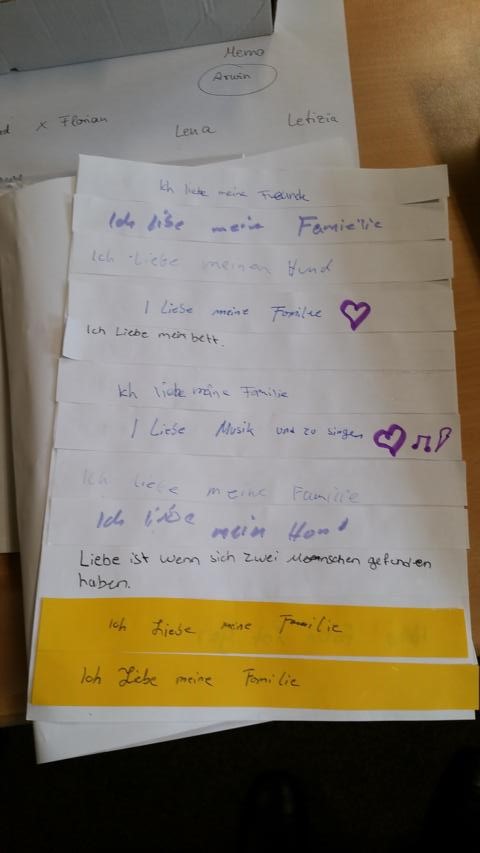 Memo
Arwin
x Florian
Lena
Letizia
Ich liebe meine Freunde
Ich libe mein Famielie
Ich Liebe meinen Hund
I Liebe meine Familie
Ich Liebe mein bett.
Ich liebe meine Familie
I Liebe Musik und zu singen
Ich liebe meine Familie
Ich libe mein Hund
Liebe ist wenn sich zwei gefunden
haben.
Ich Liebe meine Familie
Ich Liebe meine Familie